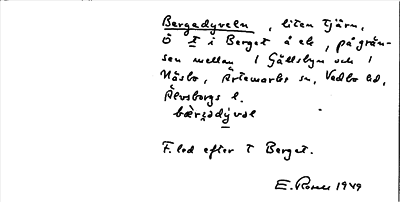 Bergadyveln, liten tjärn,
Ö t i Berget å ek, på grän-
sen mellan 1 Gällsbyn och 1
Näsbo, Ärtemarks sn, Vedbo hd,
Älvsborgs l.
F. led efter T Berget.
E. 1949